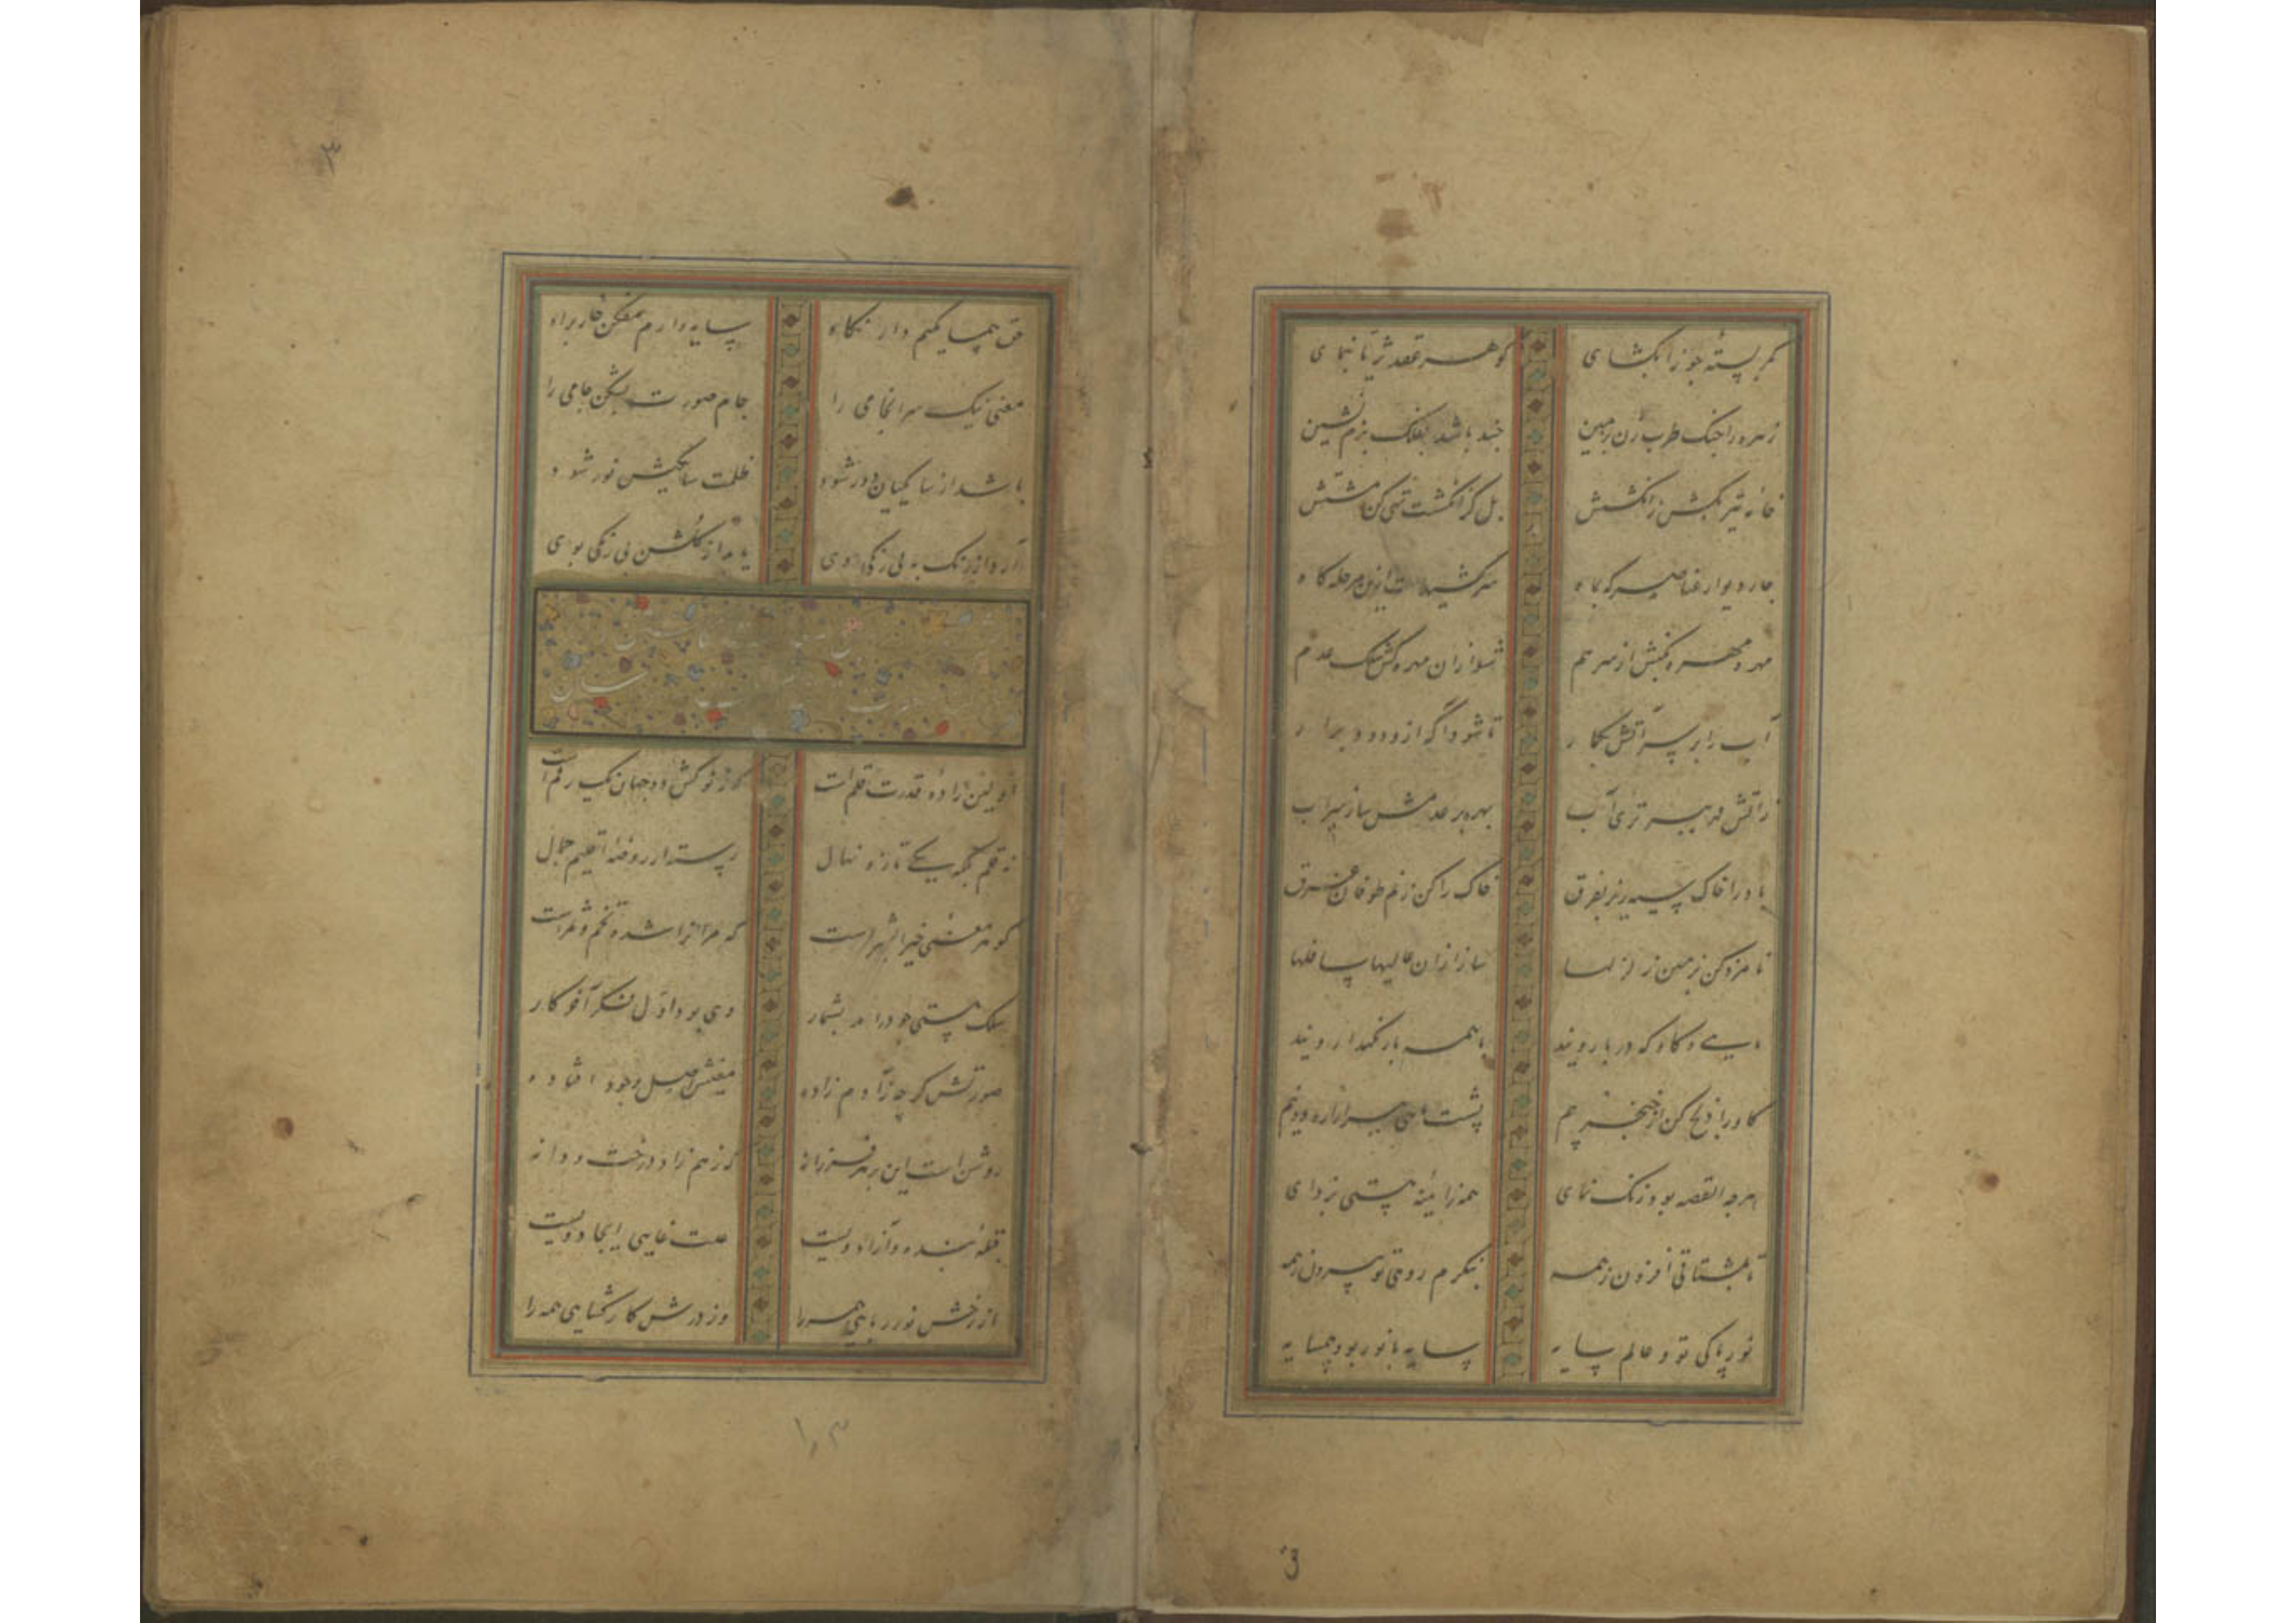 کمر بستهٔ جوزا بگشای گوهر عقد ثریا بنمای
زهره را چنگ طرب زن بزمین چند باشد بفلک بزم نشین
خامهٔ تیر بکش ز انگشتش بل کز انگشت تهی کن مشتش
چار دیوار عناصر که بماه سرکشیدست ازین مرحله گاه
مهره مهره بکنش از سر هم شو از آن مهره کش سلک عدم
آب را بر سر آتش بگمار تا شود آگه ازو دود برآر
ز آتش قهر ببر تری آب بهره بر عدمش ساز سراب
باد را خاک سیه ریز بفرق خاک را کن ز نم طوفان غرق
نامزد کن بزمین زلزلها ساز از آن عالیها سافلها
و گاو که در بار ویند با همه بار نگهدار ویند
گاو را ذبح کن از خنجر بیم پشت ماهی ببر از اره دو نیم
هرچه القصه بود زنگ نمای همه ز آئینه هستی بزدای
تا بمشتاقی افزون ز همه بنگرم روی تو بیرون ز همه
نور پاکی تو و عالم سایه سایه با نور بود همسایه
3
۳
حق همسایگیم دار نگاه سایه وارم مفکن خوار براه
معنی نیک سرانجامی را جام صورت بشکن جامی را
باشد از سایگیان دور شود ظلمت سایگیش نور شود
آرد از رنگ به بی رنگی روی یابد از گلشن بی رنگی بوی
اولین زادهٔ قدرت قلم است که ز نوکش دو جهان یک رقم است
نه قلم بلکه یکی تازه نهال رسته از روضهٔ اقلیم جمال
گوهر معنی خیرالبشر است که مر آنرا شده تخم و ثمر است
سلک هستی چو درآمد بشمار وی بود اول فکر آخر کار
صورتش گرچه ز آدم زاده معنیش اصل وجود افتاده
روشن است این بر هر فرزانه که ز هم زاد درخت و دانه
قبلهٔ بنده و آزاد ویست علت غایی ایجاد ویست
از رخش نور ربایی همه را وز درش کارگشایی همه را